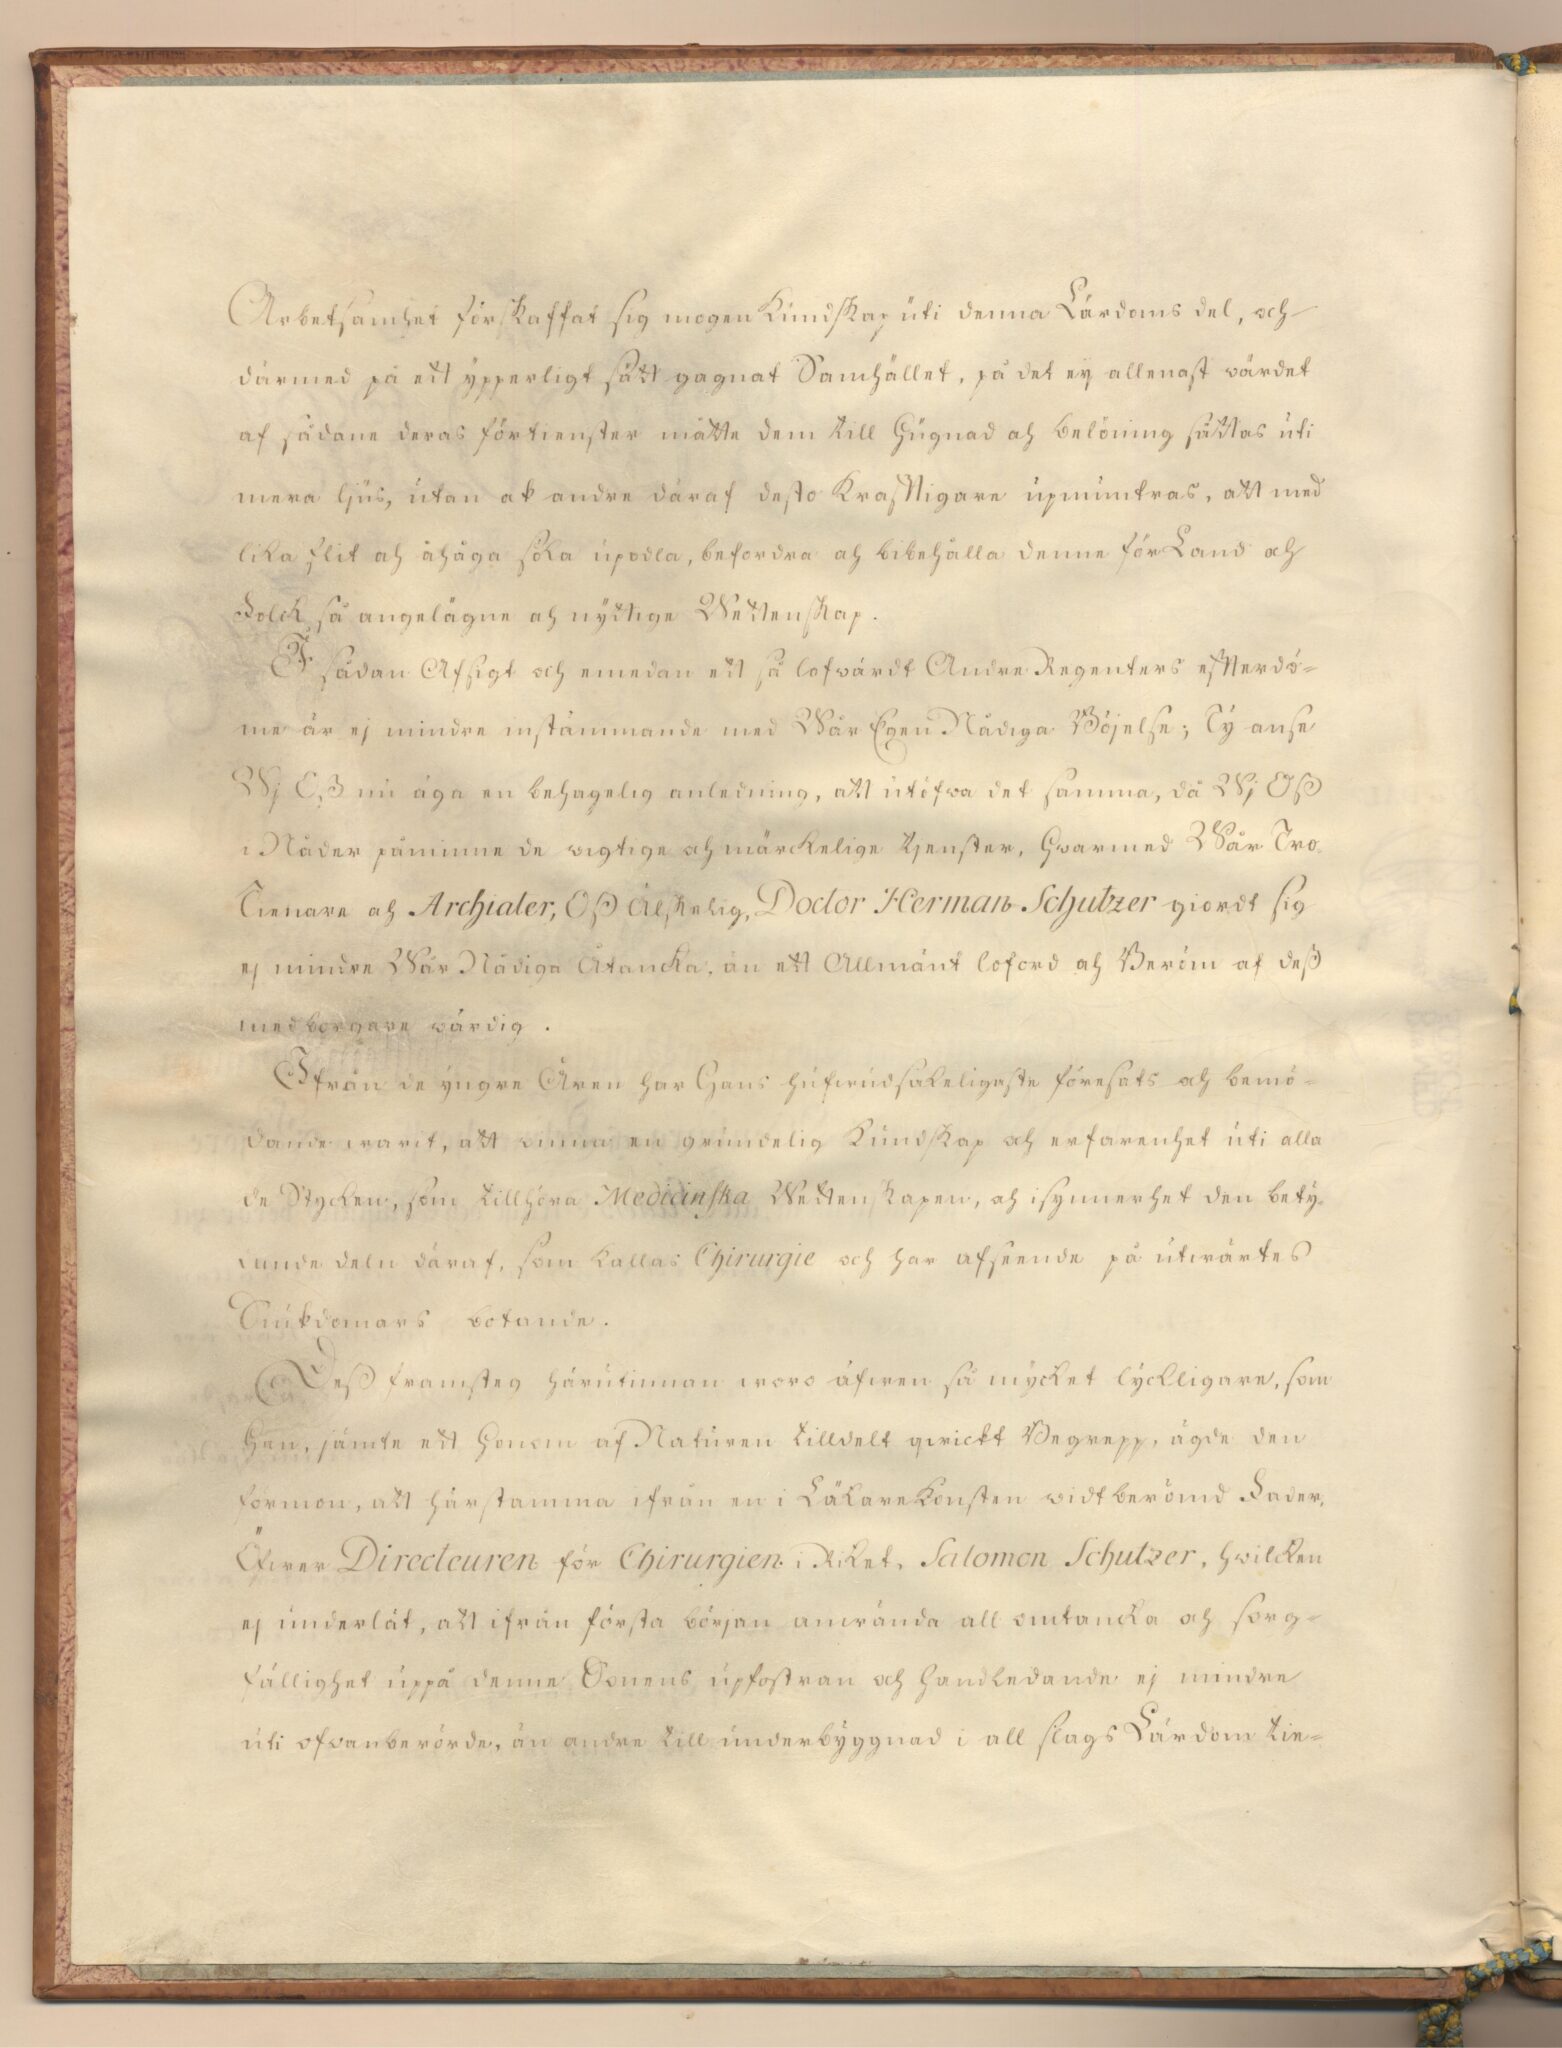 Arbetsamhet förskaffat sig mogen Kundskap uti denna Lärdoms del, och
därmed på ett ypperligt sätt gagnat Samhället, på det ey allenast wärdet
af sådane deras förtienster måtte dem till Hugnad och belöning sättas uti
mera ljus, utan ok andre däraf desto Krafftigare upmuntras, att med
lika flit och åhåga söka upodla, befordra och bibehålla denne för Land och
Folck så angelägne och nyttige Wettenskap.
I sådan Afsigt och emedan ett så lofwärdt Andre Regenters effterdö-
me är ej mindre instämmande med Wår Egen Nådiga Böjelse; Ty anse
Wj Oß nu äga en behagelig anledning, att utöfwa det samma, då Wj Oß
i Nåder påminne de wigtige och märckelige tjenster, hwarmed Wår Tro-
Tienare och Archiater, Oß Älskelig, Doctor Herman Schutzer giordt sig
ej mindre Wår Nådiga Åtancka, än ett Allmänt loford och Beröm af deß
medborgare wärdig.
Ifrån de yngre Åren har Hans hufwudsakeligaste föresats och bemö-
dande warit, att winna en grundelig Kundskap och erfarenhet uti alla
de Stycken, som tillhöra Medicinska Wettenskapen, och isynnerhet den bety-
dande deln däraf, som kallas Chirurgie och har afseende på utwärtes
Siukdomars botande.
Deß framsteg härutinnan woro äfwen så mycket lyckligare, som
Han, jämte ett Honom af Naturen tilldelt qwickt Begrepp, ägde den
förmon, att härstamma ifrån en i Läkarekonsten widtberömd Fader,
Öfwer Directeuren för Chirurgien i Riket, Salomon Schutzer, hwilcken
ej underlät, att ifrån första början anwända all omtancka och sorg-
fällighet uppå denne Sonens upfostran och Handledande ej mindre
uti ofwanberörde, än andre till underbyggnad i all slags Lärdom tie-